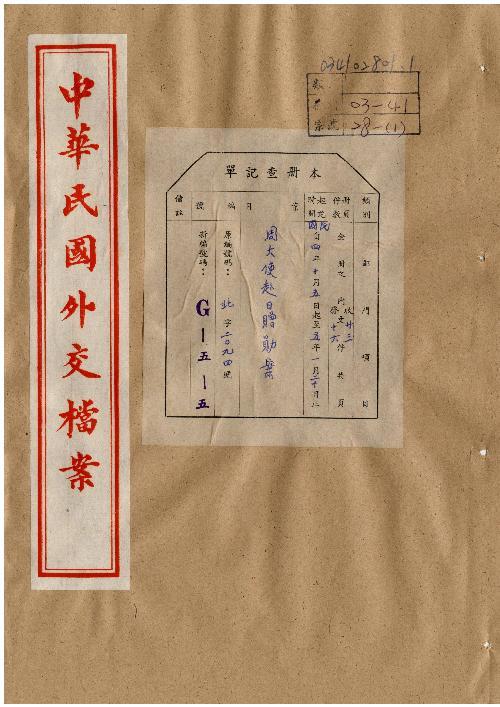 中華民國外交檔案
034102801.1
03-41
28-(1)
本冊查記單
類別 部門項目
冊頁件數 全冊之內 收文廿三 發文十六 件 共 頁
起訖時間 民國自四年十月五日起至五年一月二十日止
案目 周大使赴日贈勛案
編號 原編號碼: 北字二〇九四號
新編號碼: G-五-五
備註